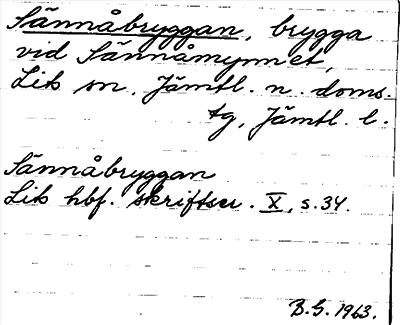 Sännåbryggan, brygga
vid Sännåmynnet,
Lits sn, Jämtl. n. doms.
tg, Jämtl. l.
Sännåbryggan
Lits hbf. skriftser. X, s. 34.
B.G. 1963.